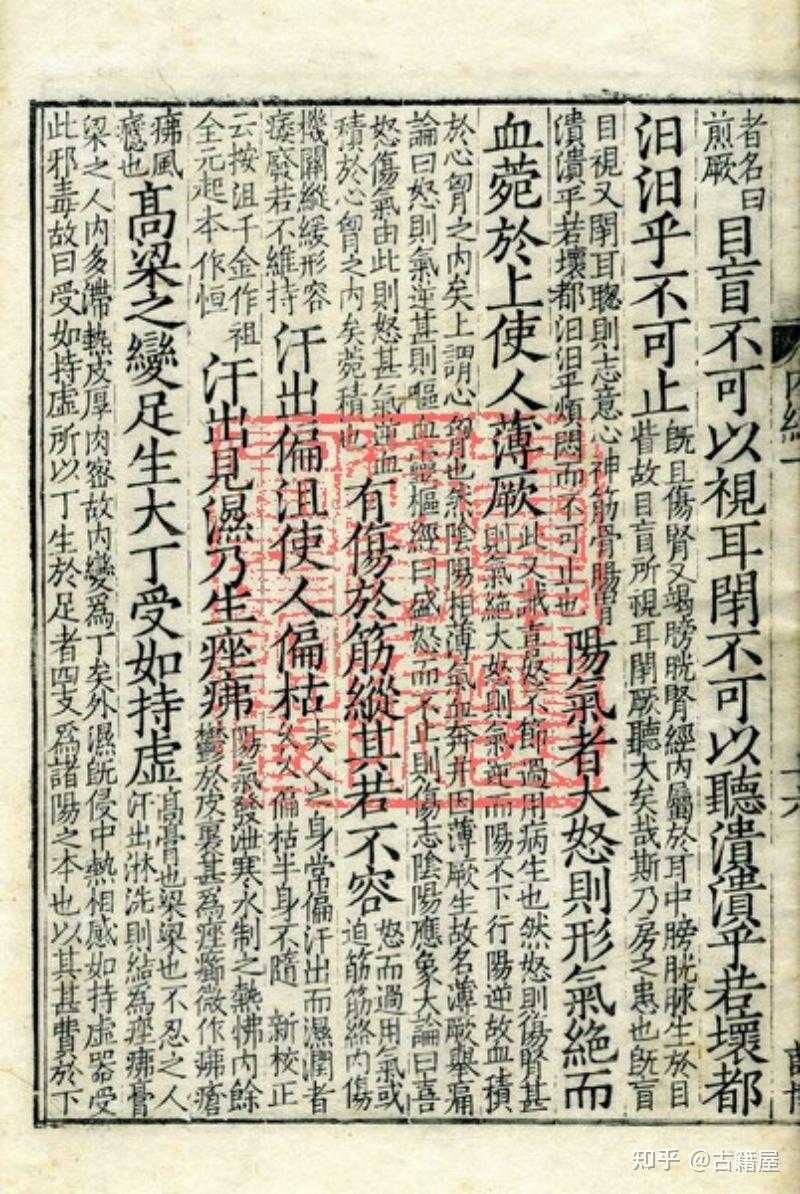 者名曰
煎厥
目盲不可以視耳閉不可以聽潰潰乎若壞都
汩汩乎不可止
既且傷腎又竭膀胱腎經內屬於耳中膀胱脉生於目
眥故目盲所視耳閉厥聽大矣哉斯乃房之患也既盲
目視又閉耳聰則志意心神筋骨腸胃
潰潰乎若壞都汩汩乎煩悶而不可止也
陽氣者大怒則形氣絕而
血菀於上使人薄厥
此又誡喜怒不節過用病生也然怒則傷腎甚
則氣絕大怒則氣逆而陽不下行陽逆故血積
於心胷之內矣上謂心胷也然陰陽相薄氣血奔并因薄厥生故名薄厥舉痛
論曰怒則氣逆甚則嘔血靈樞經曰盛怒而不止則傷志陰陽應象大論曰喜
怒傷氣由此則怒甚氣逆血
積於心胷之內矣菀積也
有傷於筋縱其若不容
怒而過用氣或
迫筋筋絡內傷
機關縱緩形容
痿廢若不維持
汗出偏沮使人偏枯
夫人之身常偏汗出而濕潤者
久久偏枯半身不隨 新校正
云按沮千金作祖
全元起本作恒
汗出見濕乃生痤疿
陽氣發泄寒水制之熱怫內餘
鬱於皮裏甚為痤癤微作疿瘡
疿風
癮也
高梁之變足生大丁受如持虛
高膏也梁粱也不忍之人
汗出淋洗則結為痤疿膏
梁之人內多滯熱皮厚肉密故內變為丁矣外濕既侵中熱相感如持虛器受
此邪毒故曰受如持虛所以丁生於足者四支為諸陽之本也以其甚費於下
知乎 @古籍屋